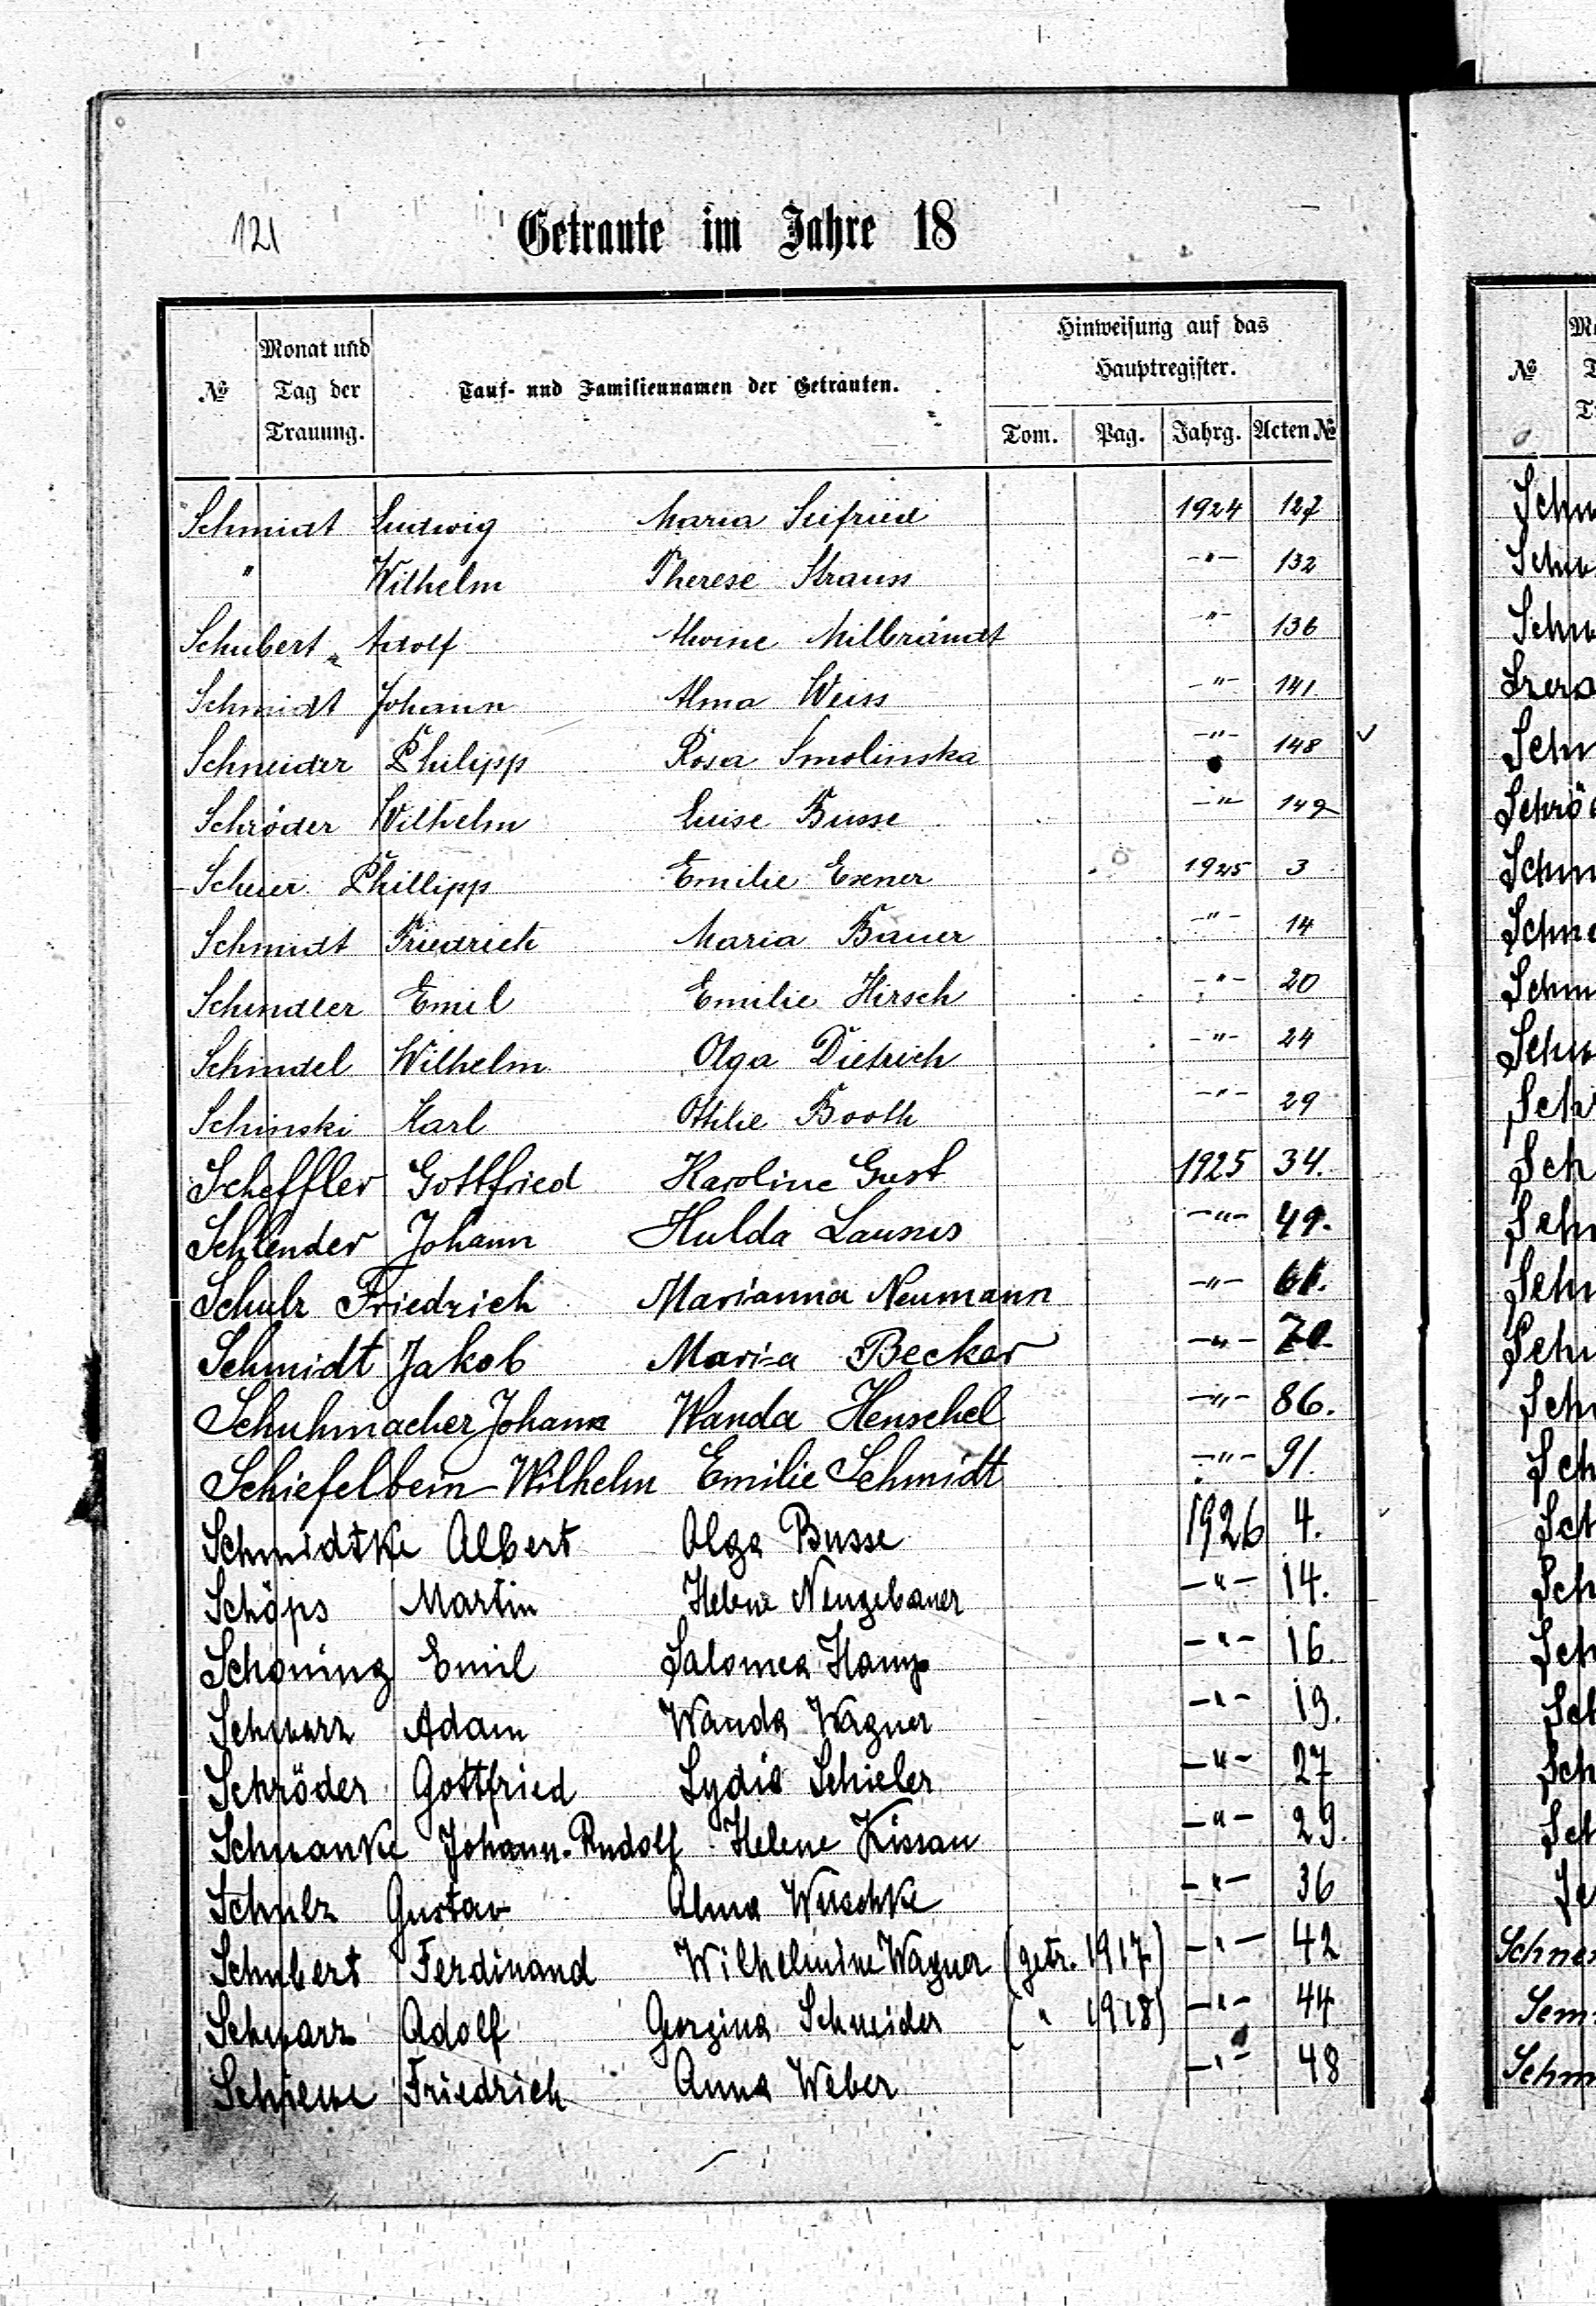 121
Getraute im Jahre 18
№
Monat und
Tag der
Trauung.
Tauf- und Familiennamen der Getrauten.
Hinweisung auf das
Hauptregister.
Tom. Pag. Jahrg. Acten №
Schmidt Ludwig Maria Seifried 1924 127
" Wilhelm Therese Strauss -"- 132
Schubert Adolf Alwine Milbrandt -"- 136
Schmidt Johann Alma Weiss -"- 141
Schneider Philipp Rosa Smolinska -"- 148
Schröder Wilhelm Luise Busse -"- 149
Scheier Phillipp Emilie Exner 1925 3
Schmidt Friedrich Maria Bauer -"- 14
Schindler Emil Emilie Hirsch -"- 20
Schindel Wilhelm Olga Dietrich -"- 24
Schinski Karl Ottilie Booth -"- 29
Scheffler Gottfried Karoline Gust 1925 34.
Schlender Johann Hulda -"- 49.
Schulz Friedrich Marianna Neumann -"- 61.
Schmidt Jakob Maria Becker -"- 70.
Schuhmacher Johann Wanda Henschel -"- 86.
Schiefelbein Wilhelm Emilie Schmidt -"- 91.
Schmidtke Albert Olga Busse 1926 4.
Schöps Martin Helene Neugebauer -"- 14.
Schoning Emil Salomea Hamp -"- 16.
Schwarz Adam Wanda Wagner -"- 19.
Schröder Gottfried Lydia Schieler -"- 27
Schwanke Johann-Rudolf Helene Kissau -"- 29.
Schulz Gustav Alma -"- 36
Schubert Ferdinand Wilhelmine Wagner (getr. 1917) -"- 42
Schwarz Adolf Georgina Schneider ( " 1918) -"- 44
Schiewe Friedrich Anna Weber -"- 48